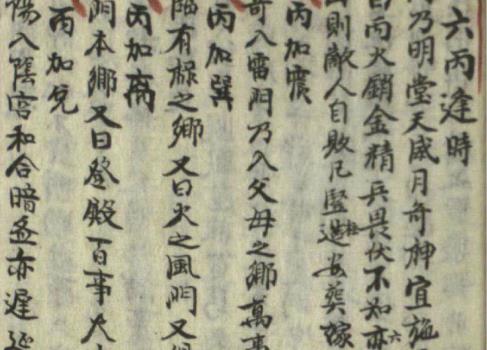 六丙逢時
乃明堂天威月奇神宜施
丙火銷金精兵畏伏不知亦六
則敵人自敗凡豎造柱安葬嫁
丙加震
奇入雷門乃入父母之鄉萬事
丙加巽
臨有祿之鄉又曰火之風門又
丙加离
門本鄉又曰登殿百事大
丙加兌
入陰宮和合暗亦遲延